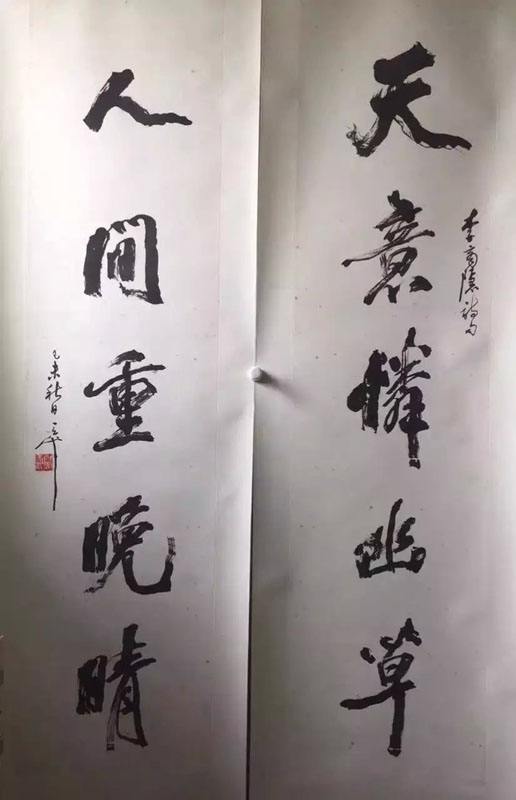 李商隱詩句
天意憐幽草
人間重晚晴
己未秋日